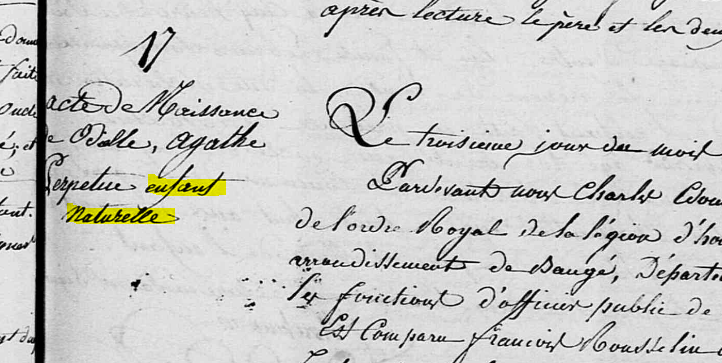 après lecture le père et les deux
17
acte de Naissance
de Odille, agathe
Perpetue enfant
Naturelle
Le troisieme jour du mois
Pardevant nous Charles
de l'ordre Royal de la légion d'hon
arrondissement de Baugé, Départe
les fonctions d'officier public de
Est Comparu francois Rousselin